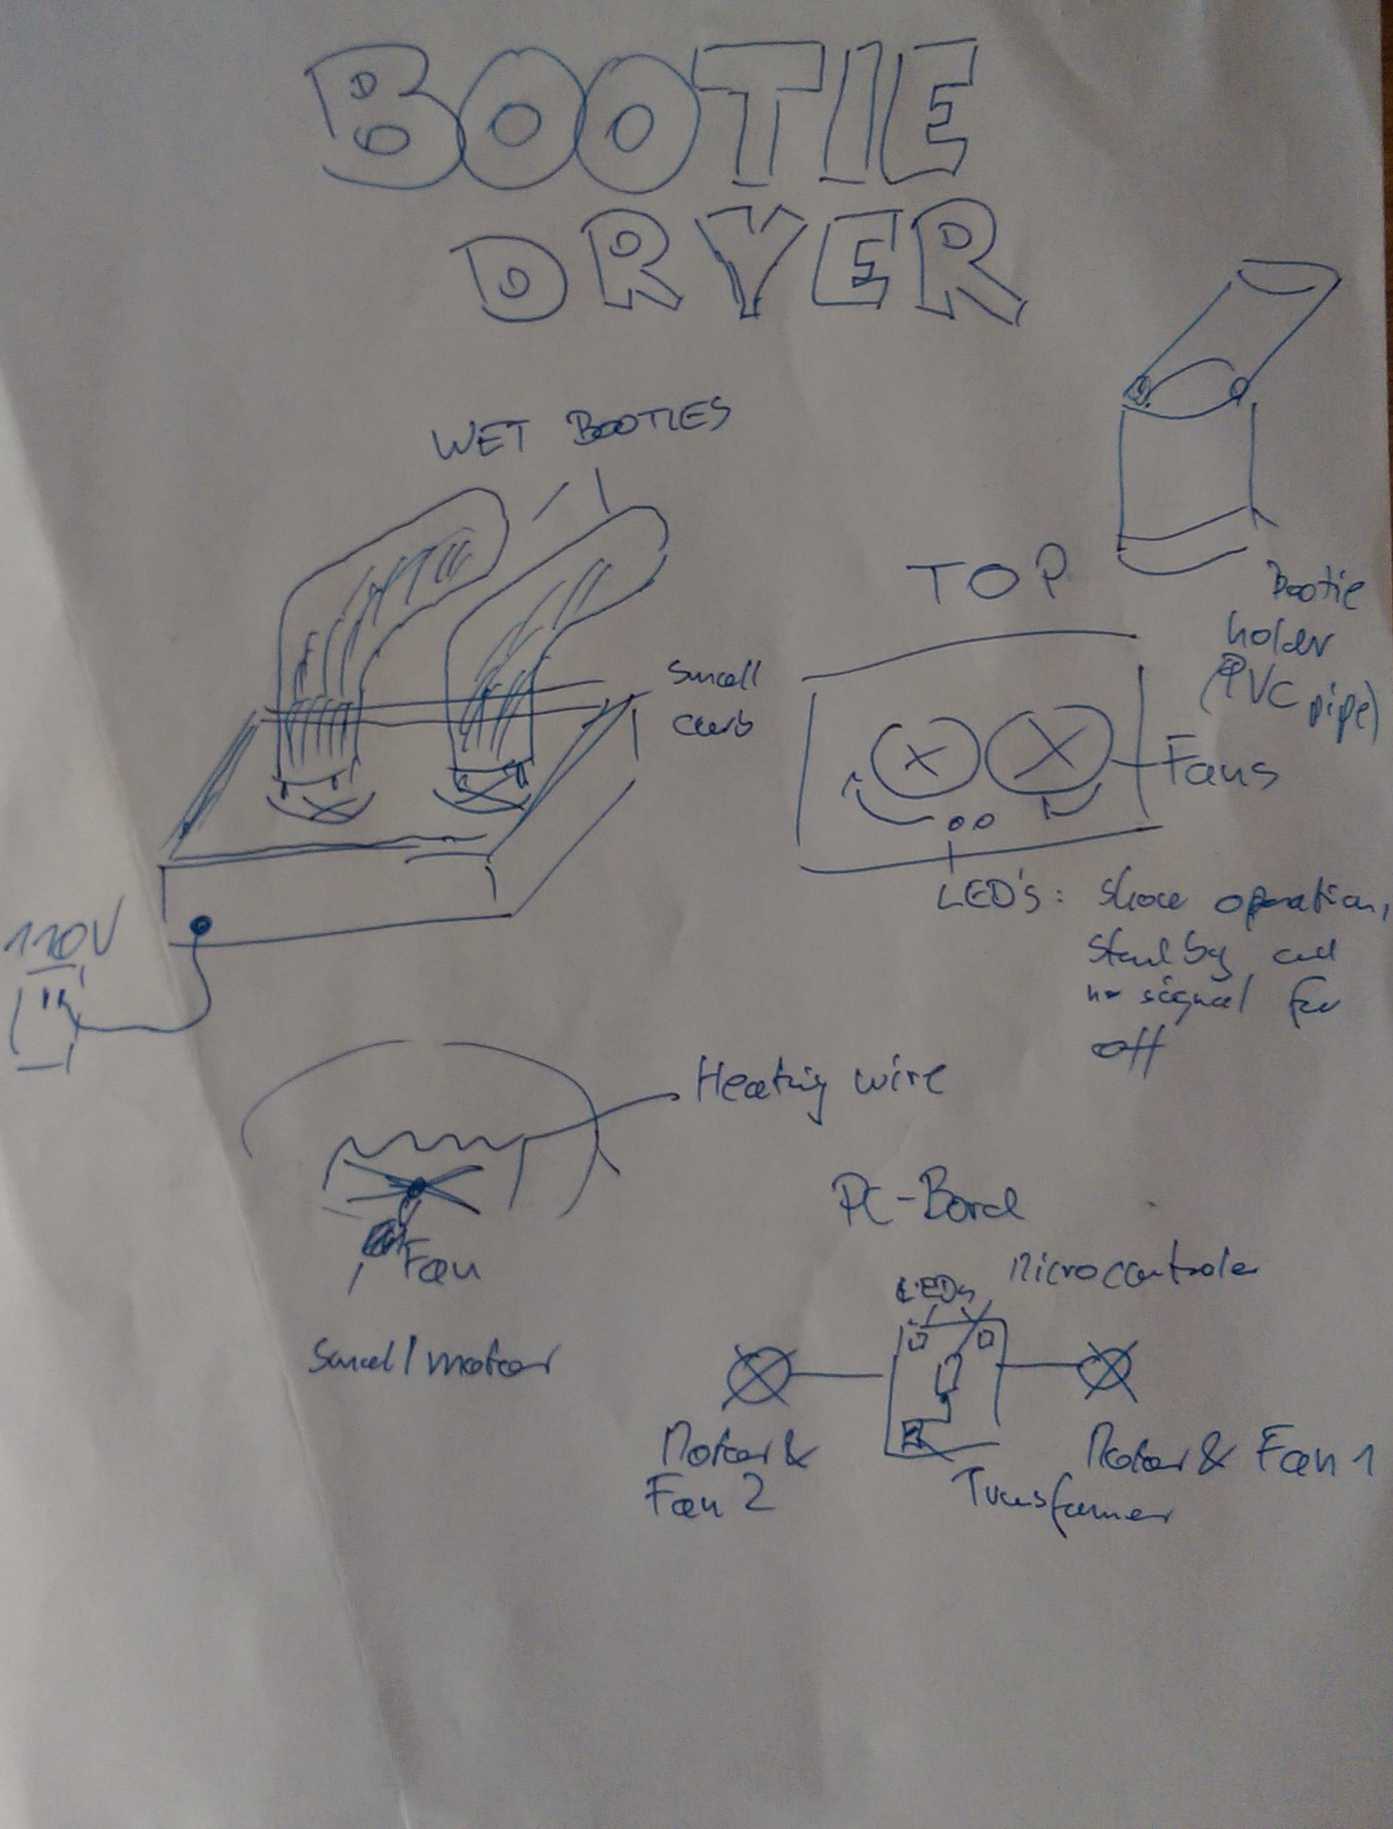 BOOTIE
DRYER
WET BOOTIES
Small
curb
110V
Bootie
holder
(PVC pipe)
TOP
Fans
LED's: show operation,
stand by and
no signal for
off
Heating wire
Fan
Small motor
PC-Bord
LEDs
Microcontroler
Motor &
Fan 2
Motor & Fan 1
Transformer